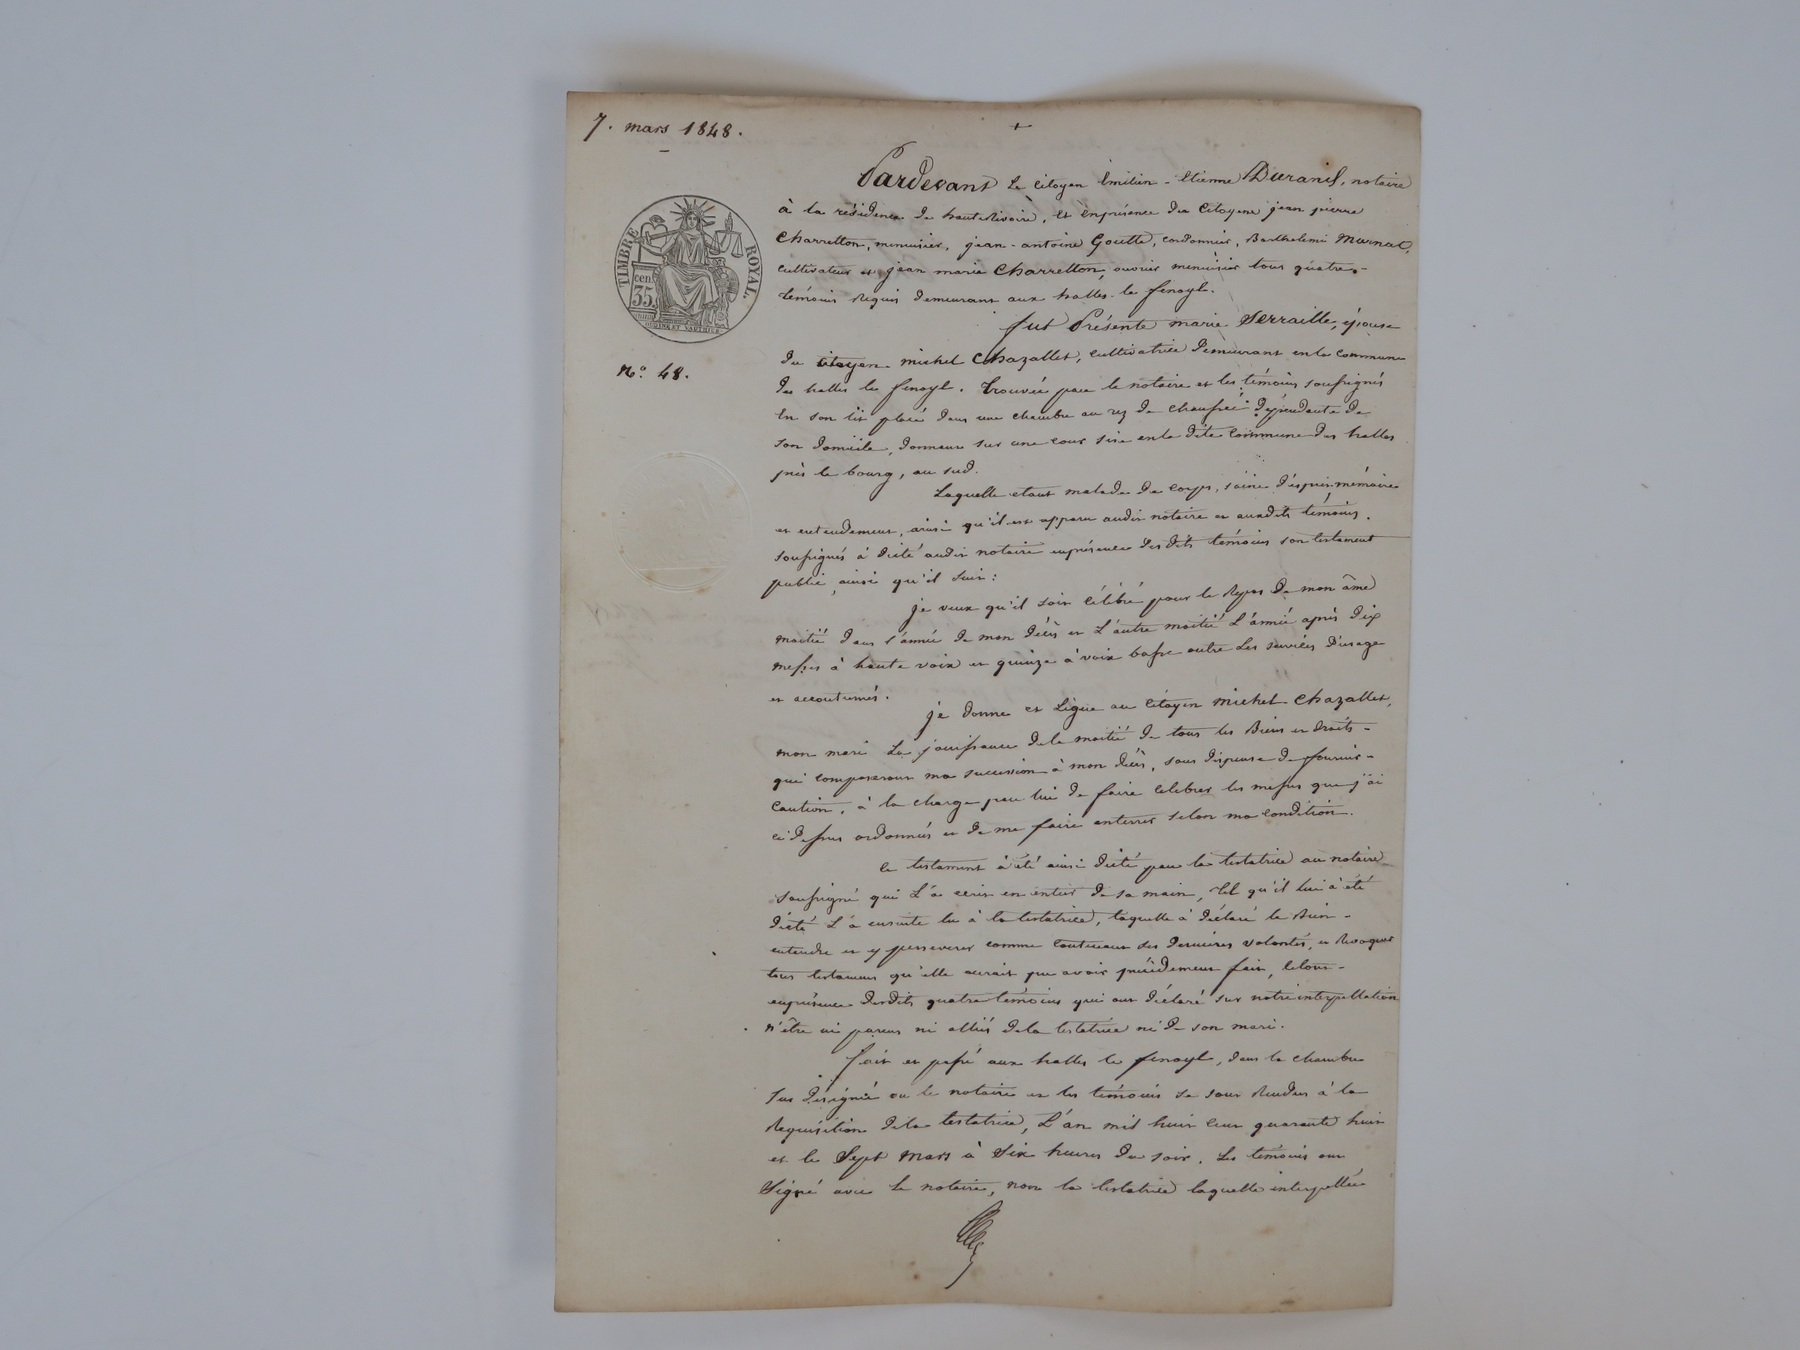 7. mars 1848.
Pardevant Le Citoyen Emilien-Etienne Durand, notaire
à la résidence de hauterivoire, et en présence des Citoyens jean pierre
Charretton, menuisier, jean-antoine Goutte, cordonnier, Barthelemi
cultivateur et jean marie Charretton, ouvrier menuisier tous quatre
témoins Requis demeurant aux halles-le fenoyl.
TIMBRE ROYAL.
cen. 35
fut Présente marie Serraille, épouse
du citoyen michel Chazallet, cultivatrice demeurant en la commune
N.o 48.
des halles le fenoyl. trouvée par le notaire et les témoins soussignés
En son lit placé dans une chambre au rez de chaussée dépendante de
son domicile, donnant sur une cour sise en la dite commune des halles
près le bourg, au sud.
Laquelle étant malade de corps, saine d'esprit, mémoire
et entendement, ainsi qu'il est apparu audit notaire et auxdits témoins
soussignés à dicté audit notaire en présence desdits témoins son testament
public, ainsi qu'il suit :
je veux qu'il soit célébré pour le Repos de mon âme
moitié dans l'année de mon décès et L'autre moitié L'année après dix
messes à haute voix et quinze à voix basse outre les services d'usage
et accoutumés.
je donne et Légue au Citoyen michel Chazallet,
mon mari La jouissance de la moitié de tous les Biens et droits
qui composeront ma succession à mon décès, sous dispense de fournir
caution, à la charge par lui de faire célébrer les messes que j'ai
ci dessus ordonnés et de me faire enterrer selon ma condition.
Ce testament à été ainsi dicté par la testatrice au notaire
soussigné qui L'a écrit en entier de sa main, tel qu'il lui à été
dicté L'a ensuite lu à la testatrice, laquelle à déclaré le Bien
entendre et y perseverer comme contenant ses dernières volontés, et Révoquer
tous testamens qu'elle aurait pu avoir précédement fait, le tout
en présence desdits quatre témoins qui ont déclaré sur notre interpellation
n'être ni parens ni alliés de la testatrice ni de son mari.
fait et passé aux halles le fenoyl, dans la chambre
sus désignée où le notaire et les témoins se sont Rendus à la
Requisition de la testatrice, L'an mil huit cent quarante huit
et le Sept Mars à Six heures du soir. Les témoins ont
Signé avec le notaire, non la testatrice laquelle interpellée